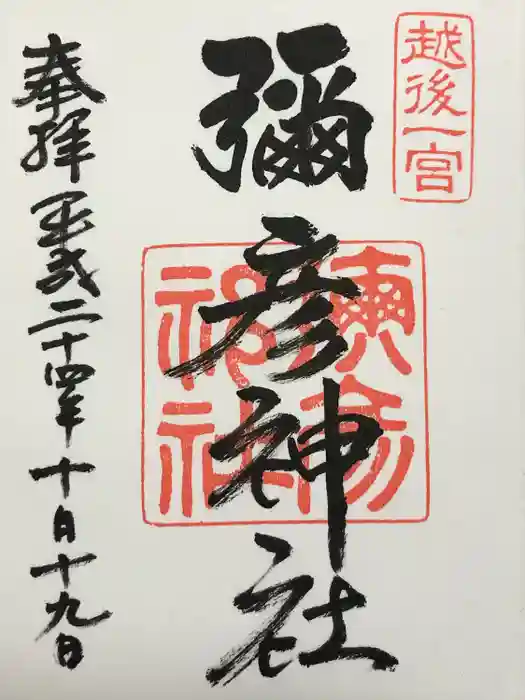 越後一宮
彌彦神社
奉拝 平成二十四年 十月十九日